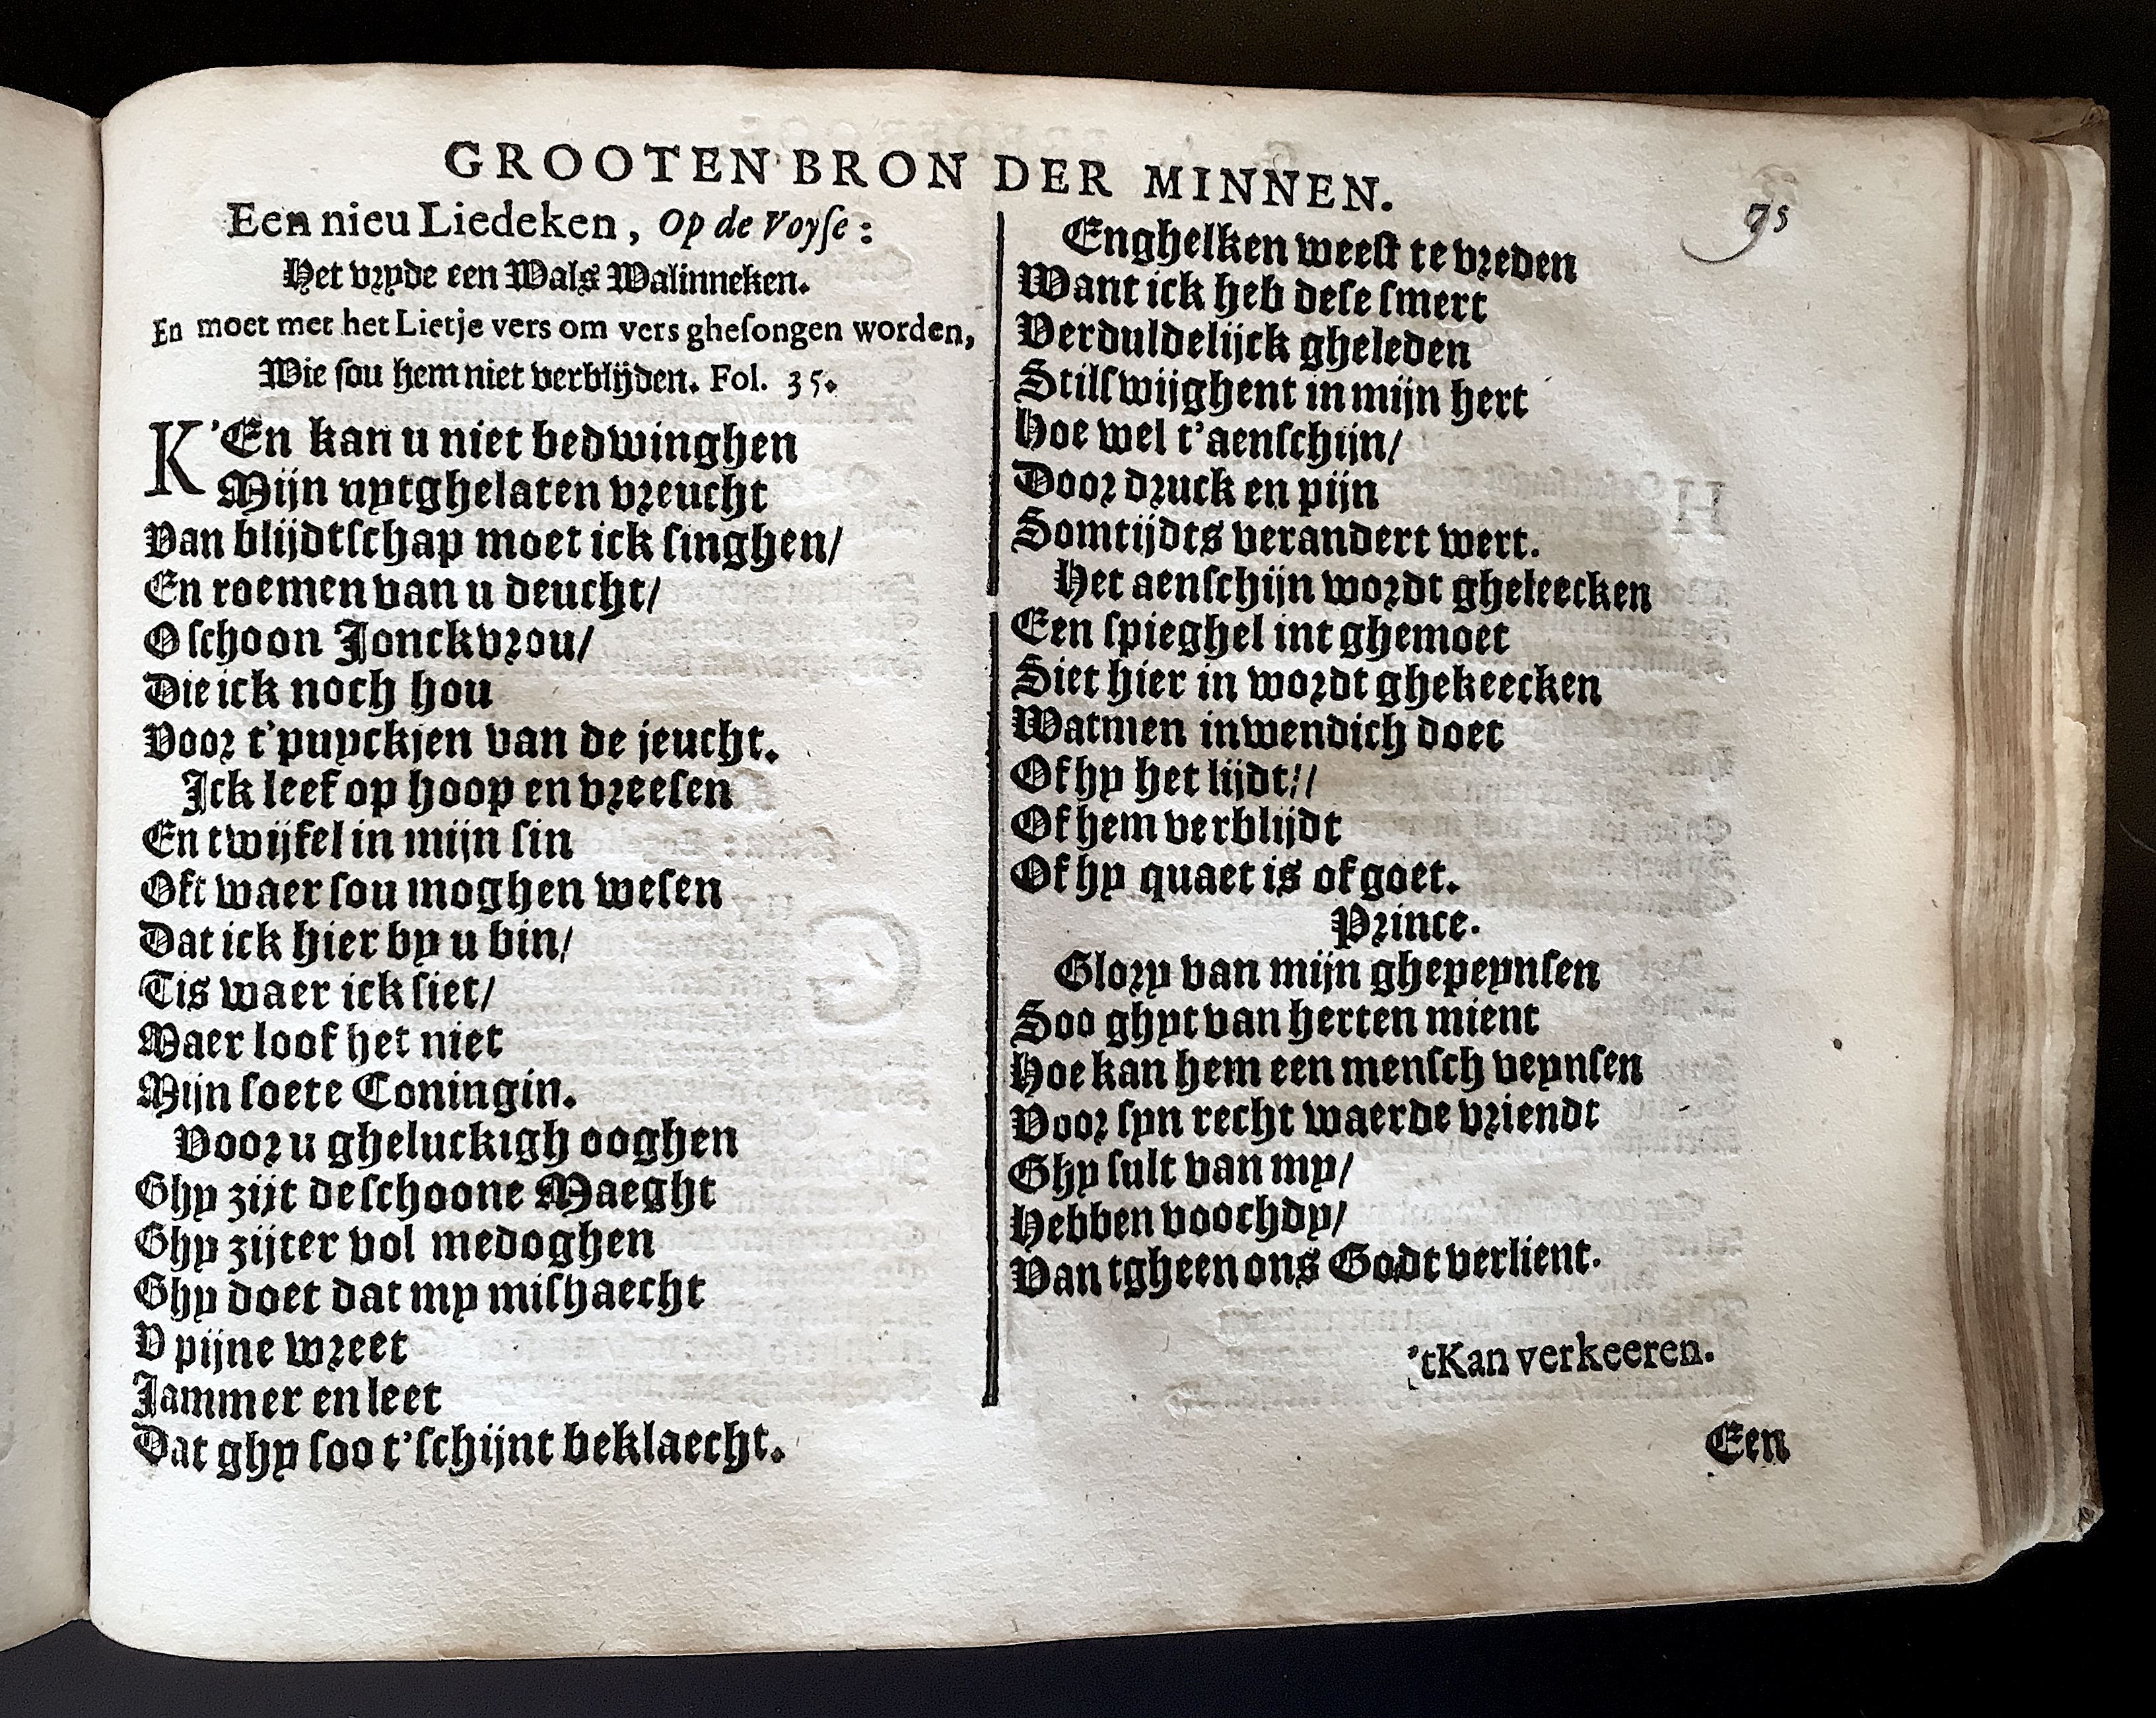 GROOTEN BRON DER MINNEN.
75
Een nieu Liedeken, Op de Voyſe:
Het vryde een Wals Walinneken.
En moet met het Lietje vers om vers gheſongen worden,
Wie ſou hem niet verblijden. Fol. 35.
K'En kan u niet bedwinghen
Mijn uytghelaten vreucht
Van blijdtſchap moet ick ſinghen/
En roemen van u deucht/
O ſchoon Jonckvrou/
Die ick noch hou
Voor t'puyckjen van de jeucht.
Ick leef op hoop en vreeſen
En twijfel in mijn ſin
Oft waer ſou moghen weſen
Dat ick hier by u bin/
Tis waer ick ſiet/
Maer loof het niet
Mijn ſoete Coningin.
Voor u gheluckigh ooghen
Ghy zijt de ſchoone Maeght
Ghy zijter vol medoghen
Ghy doet dat my miſhaecht
V pijne wreet
Jammer en leet
Dat ghy ſoo t'ſchijnt beklaecht.
Enghelken weeſt te vreden
Want ick heb deſe ſmert
Verduldelijck gheleden
Stilſwijghent in mijn hert
Hoe wel t'aenſchijn/
Door druck en pijn
Somtijdts verandert wert.
Het aenſchijn wordt gheleecken
Een ſpieghel int ghemoet
Siet hier in wordt ghekeecken
Watmen inwendich doet
Of hy het lijdt!/
Of hem verblijdt
Of hy quaet is of goet.
Prince.
Glory van mijn ghepeynſen
Soo ghyt van herten mient
Hoe kan hem een menſch veynſen
Voor ſyn recht waerde vriendt
Ghy ſult van my/
Hebben voochdy/
Van tgheen ons Godt verlient.
'tKan verkeeren.
Een